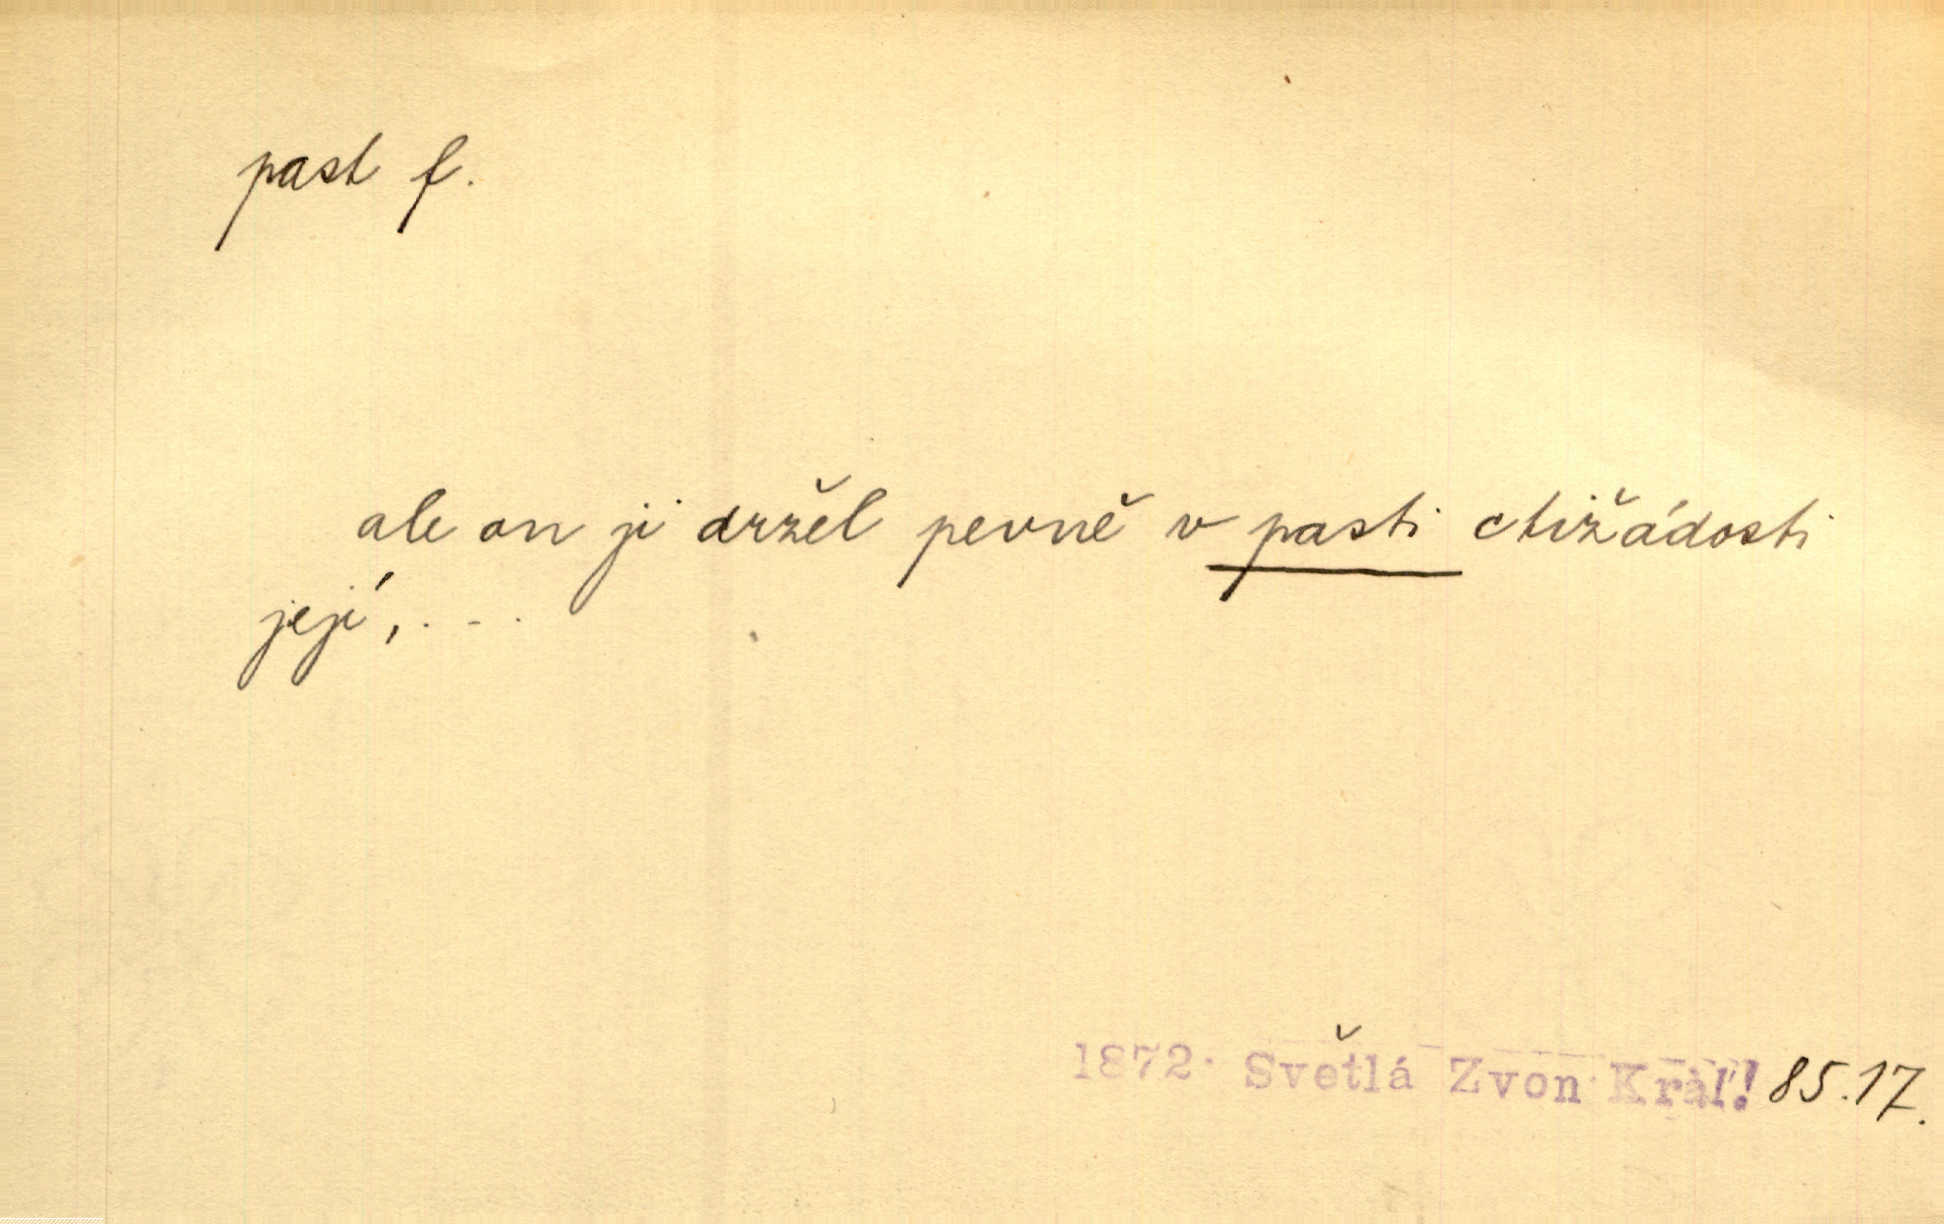 past f.
ale on ji držel pevně v pasti ctižádosti
její, . - .
1872. Světlá Zvon. Král! 85.17.